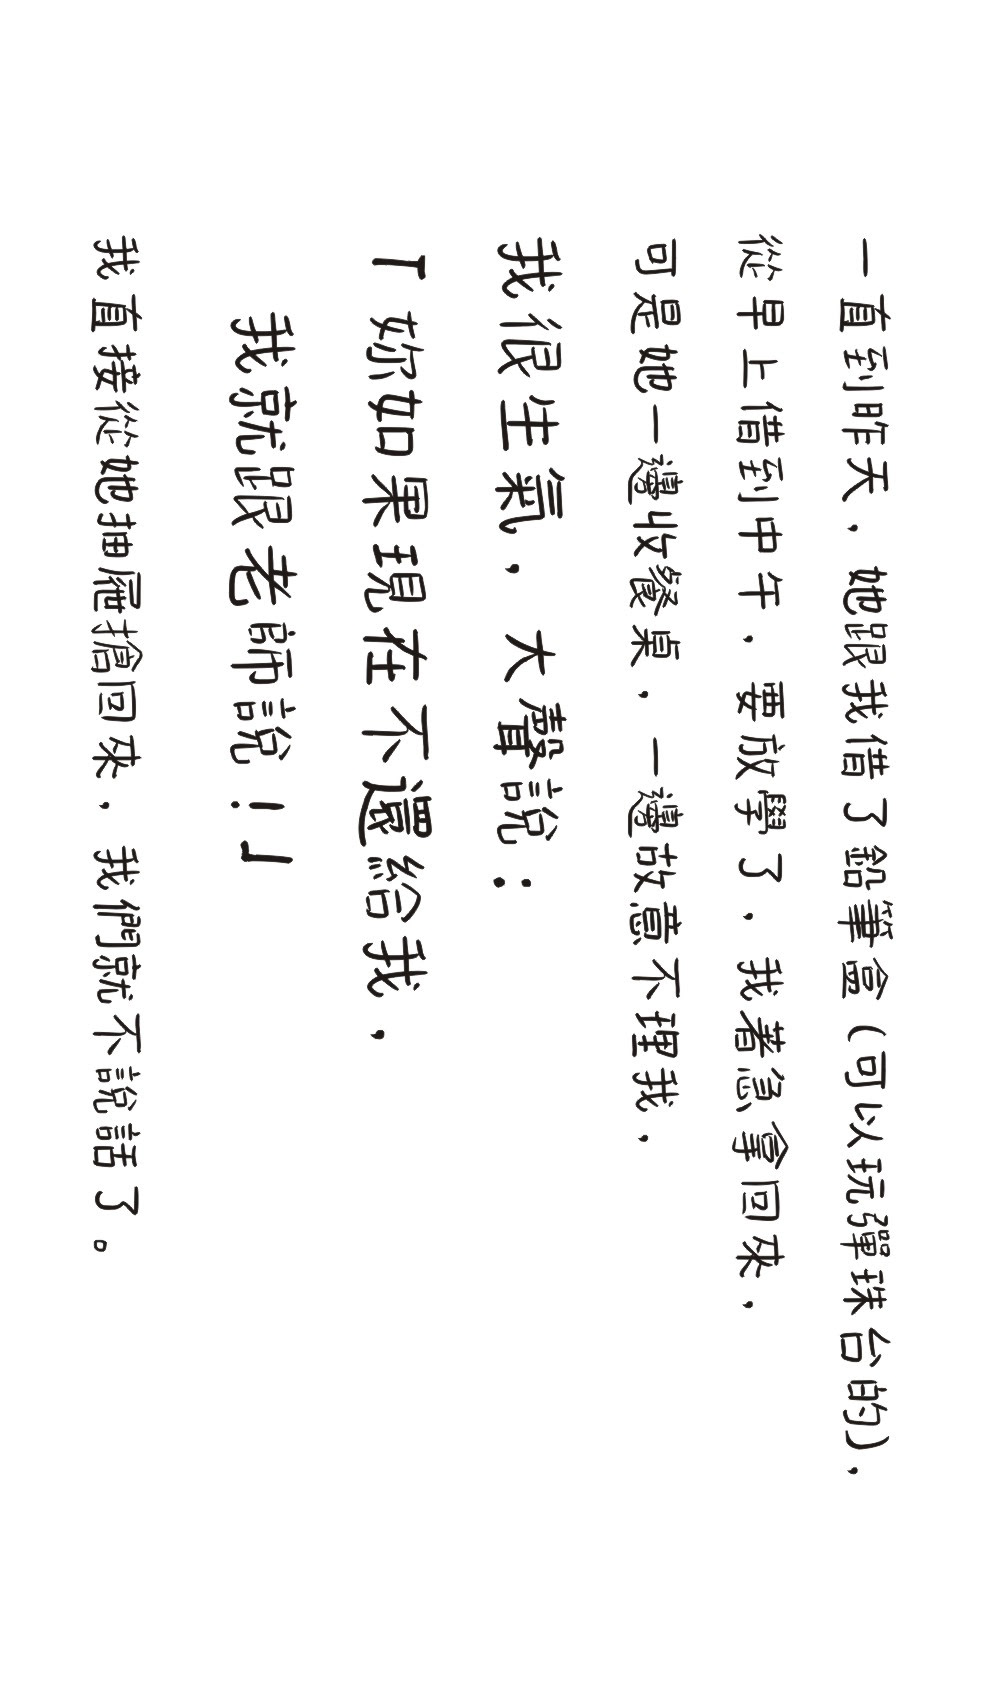 一直到昨天，她跟我借了鉛筆盒（可以玩彈珠台的），
從早上借到中午，要放學了，我著急拿回來，
可是她一邊收餐桌，一邊故意不理我，
我很生氣，大聲說：
「妳如果現在不還給我，
我就跟老師說！」
我直接從她抽屜搶回來，我們就不說話了。